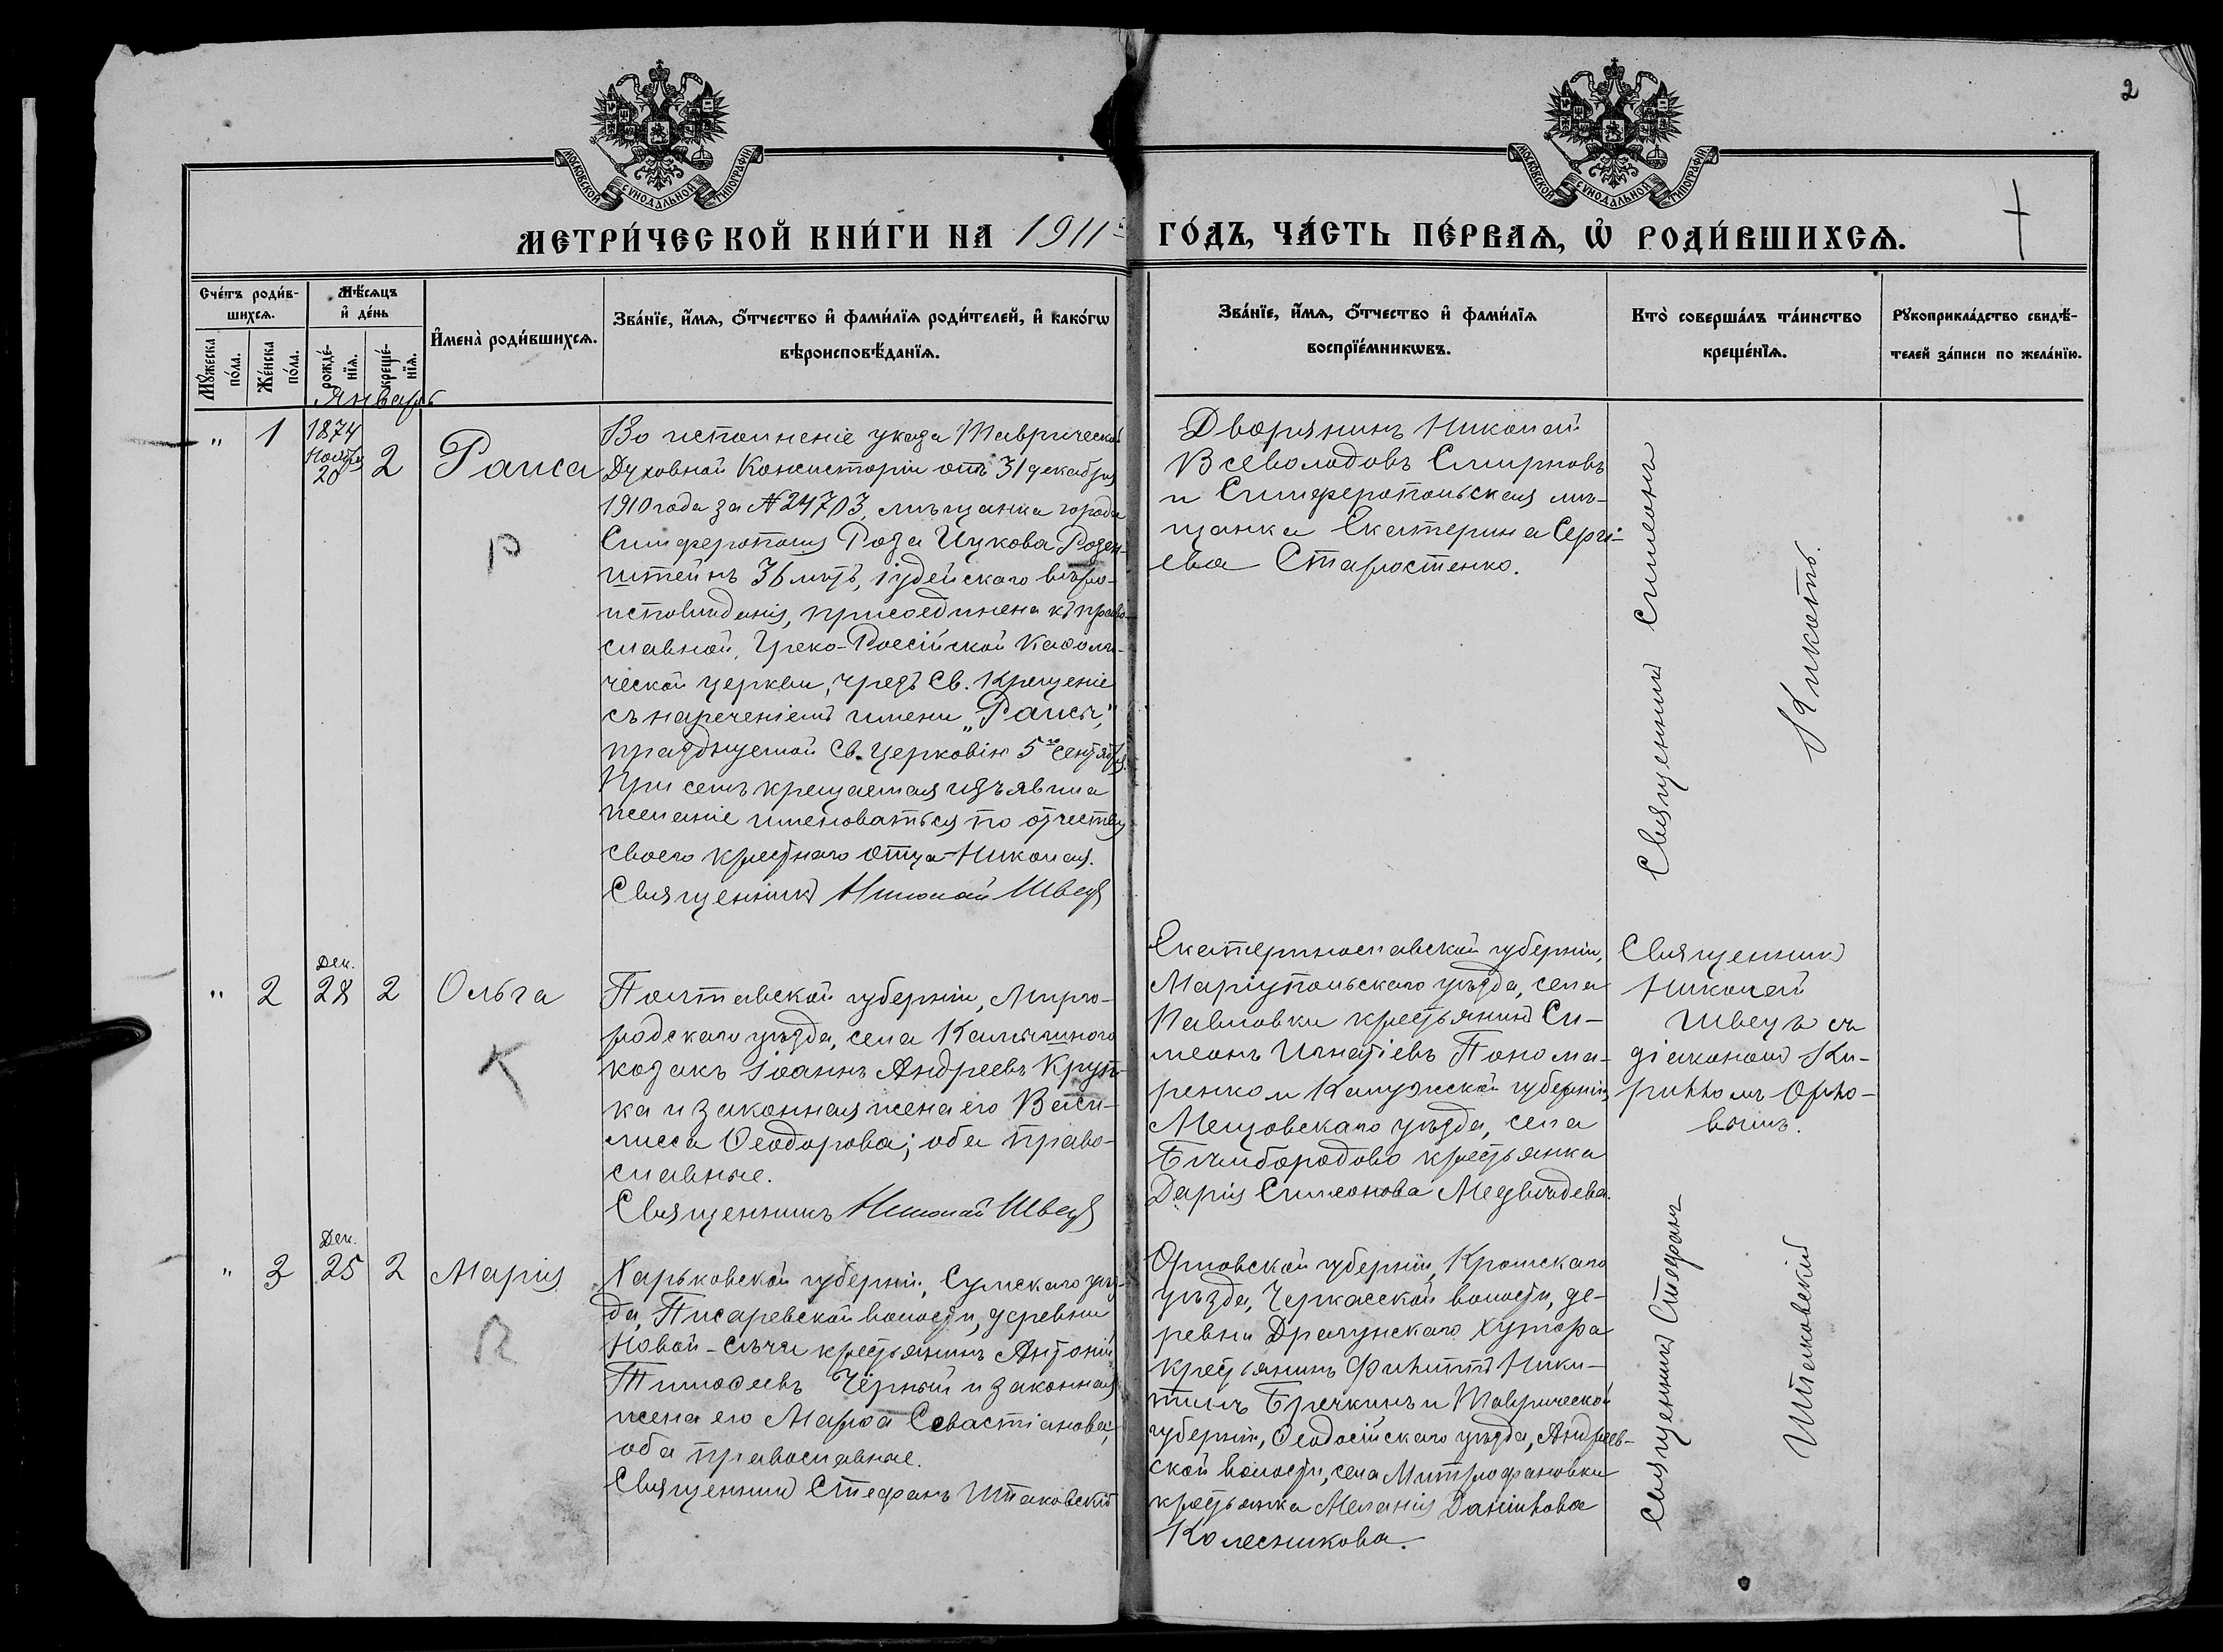 2
МОСКОВСКОЙ СѴНОДАЛЬНОЙ ТИПОГРАФІИ
МОСКОВСКОЙ СѴНОДАЛЬНОЙ ТИПОГРАФІИ
МЕТРИ́ЧЕСКОЙ КНИ́ГИ НА 1911й ГО́ДЪ, ЧА́СТЬ ПЕ́РВАѦ, Ѡ҆ РОДИ́ВШИХСѦ.
Сче́тъ роди́в-
шихсѧ.
Мꙋ́жеска
по́ла.
Же́нска
по́ла.
Мѣ́сѧцъ
и҆ де́нь
рожде́-
нїѧ.
креще́-
нїѧ.
И҆мена̀ роди́вшихсѧ.
Зва́нїе, и҆́мѧ, ѻ҆́тчество и҆ фами́лїѧ роди́телей, и҆ како́гѡ
вѣроисповѣ́данїѧ.
Зва́нїе, и҆́мѧ, ѻ҆́тчество и҆ фами́лїѧ
воспрїе́мникѡвъ.
Кто̀ соверша́лъ та́инство
креще́нїѧ.
Рꙋкоприкла́дство свидѣ́-
телей за́писи по жела́нїю.
Январь
" 1
1874
Ноября
20
2
Раиса
Во исполненіе указа Таврической
Духовной Консисторіи отъ 31 декабря
1910 года за № 24703, мѣщанка города
Симферополя Роза Ицкова Розен-
штейнъ 36 лѣтъ, іудейскаго вѣро-
исповѣданія, присоединена къ право-
славной, Греко-Россійской Каѳоли-
ческой церкви, чрезъ Св. Крещеніе
съ нареченіемъ имени „Раиса",
празднуемой Св. Церковію 5го сентября.
При семъ крещаемая изъявила
желаніе именоваться по отчеству
своего крестнаго отца - Николая.
Священникъ Николай Швецъ
Р
Дворянинъ Николай
Всеволодовъ Смирновъ
и Симферопольская мѣ-
щанка Екатерина Сергі-
ева Старостенко.
Священникъ Симеонъ
" 2
Дек.
28
2
Ольга
К
Полтавской губерніи, Мирго-
родскаго уѣзда, села Камышнаго
козакъ Іоаннъ Андреевъ Круп-
ка и законная жена его Васи-
лисса Ѳеодорова; оба право-
славные.
Священникъ Николай Швецъ
Екатеринославской губерніи,
Маріупольскаго уѣзда, села
Павловки крестьянинъ Си-
меонъ Игнатіевъ Понома-
ренко и Калужской губерніи,
Мещовскаго уѣзда, села
крестьянка
Дарія Симеонова Медвѣдева.
Священникъ
Николай
Швецъ съ
діакономъ Ки-
рилломъ Орло-
вымъ.
" 3
Дек.
25
2
Марія
Харьковской губерніи, Сумскаго уѣз-
да, Писаревской волости, деревни
Новой-Сѣчи крестьянинъ Антоній
Тимоѳеевъ Чёрный и законная
жена его Марѳа Севастіанова;
оба православные.
Священникъ Стефанъ Шпаковскій
Орловской губерніи, Кромскаго
уѣзда, Черкасской волости, де-
ревни Драгунскаго хутора
крестьянинъ Филиппъ Ники-
тинъ Бречкинъ и Таврической
губерніи, Ѳеодосійскаго уѣзда, Андреев-
ской волости, села Митрофановки
крестьянка Меланія Даніилова
Колесникова.
Священникъ Стефанъ
Шпаковскій